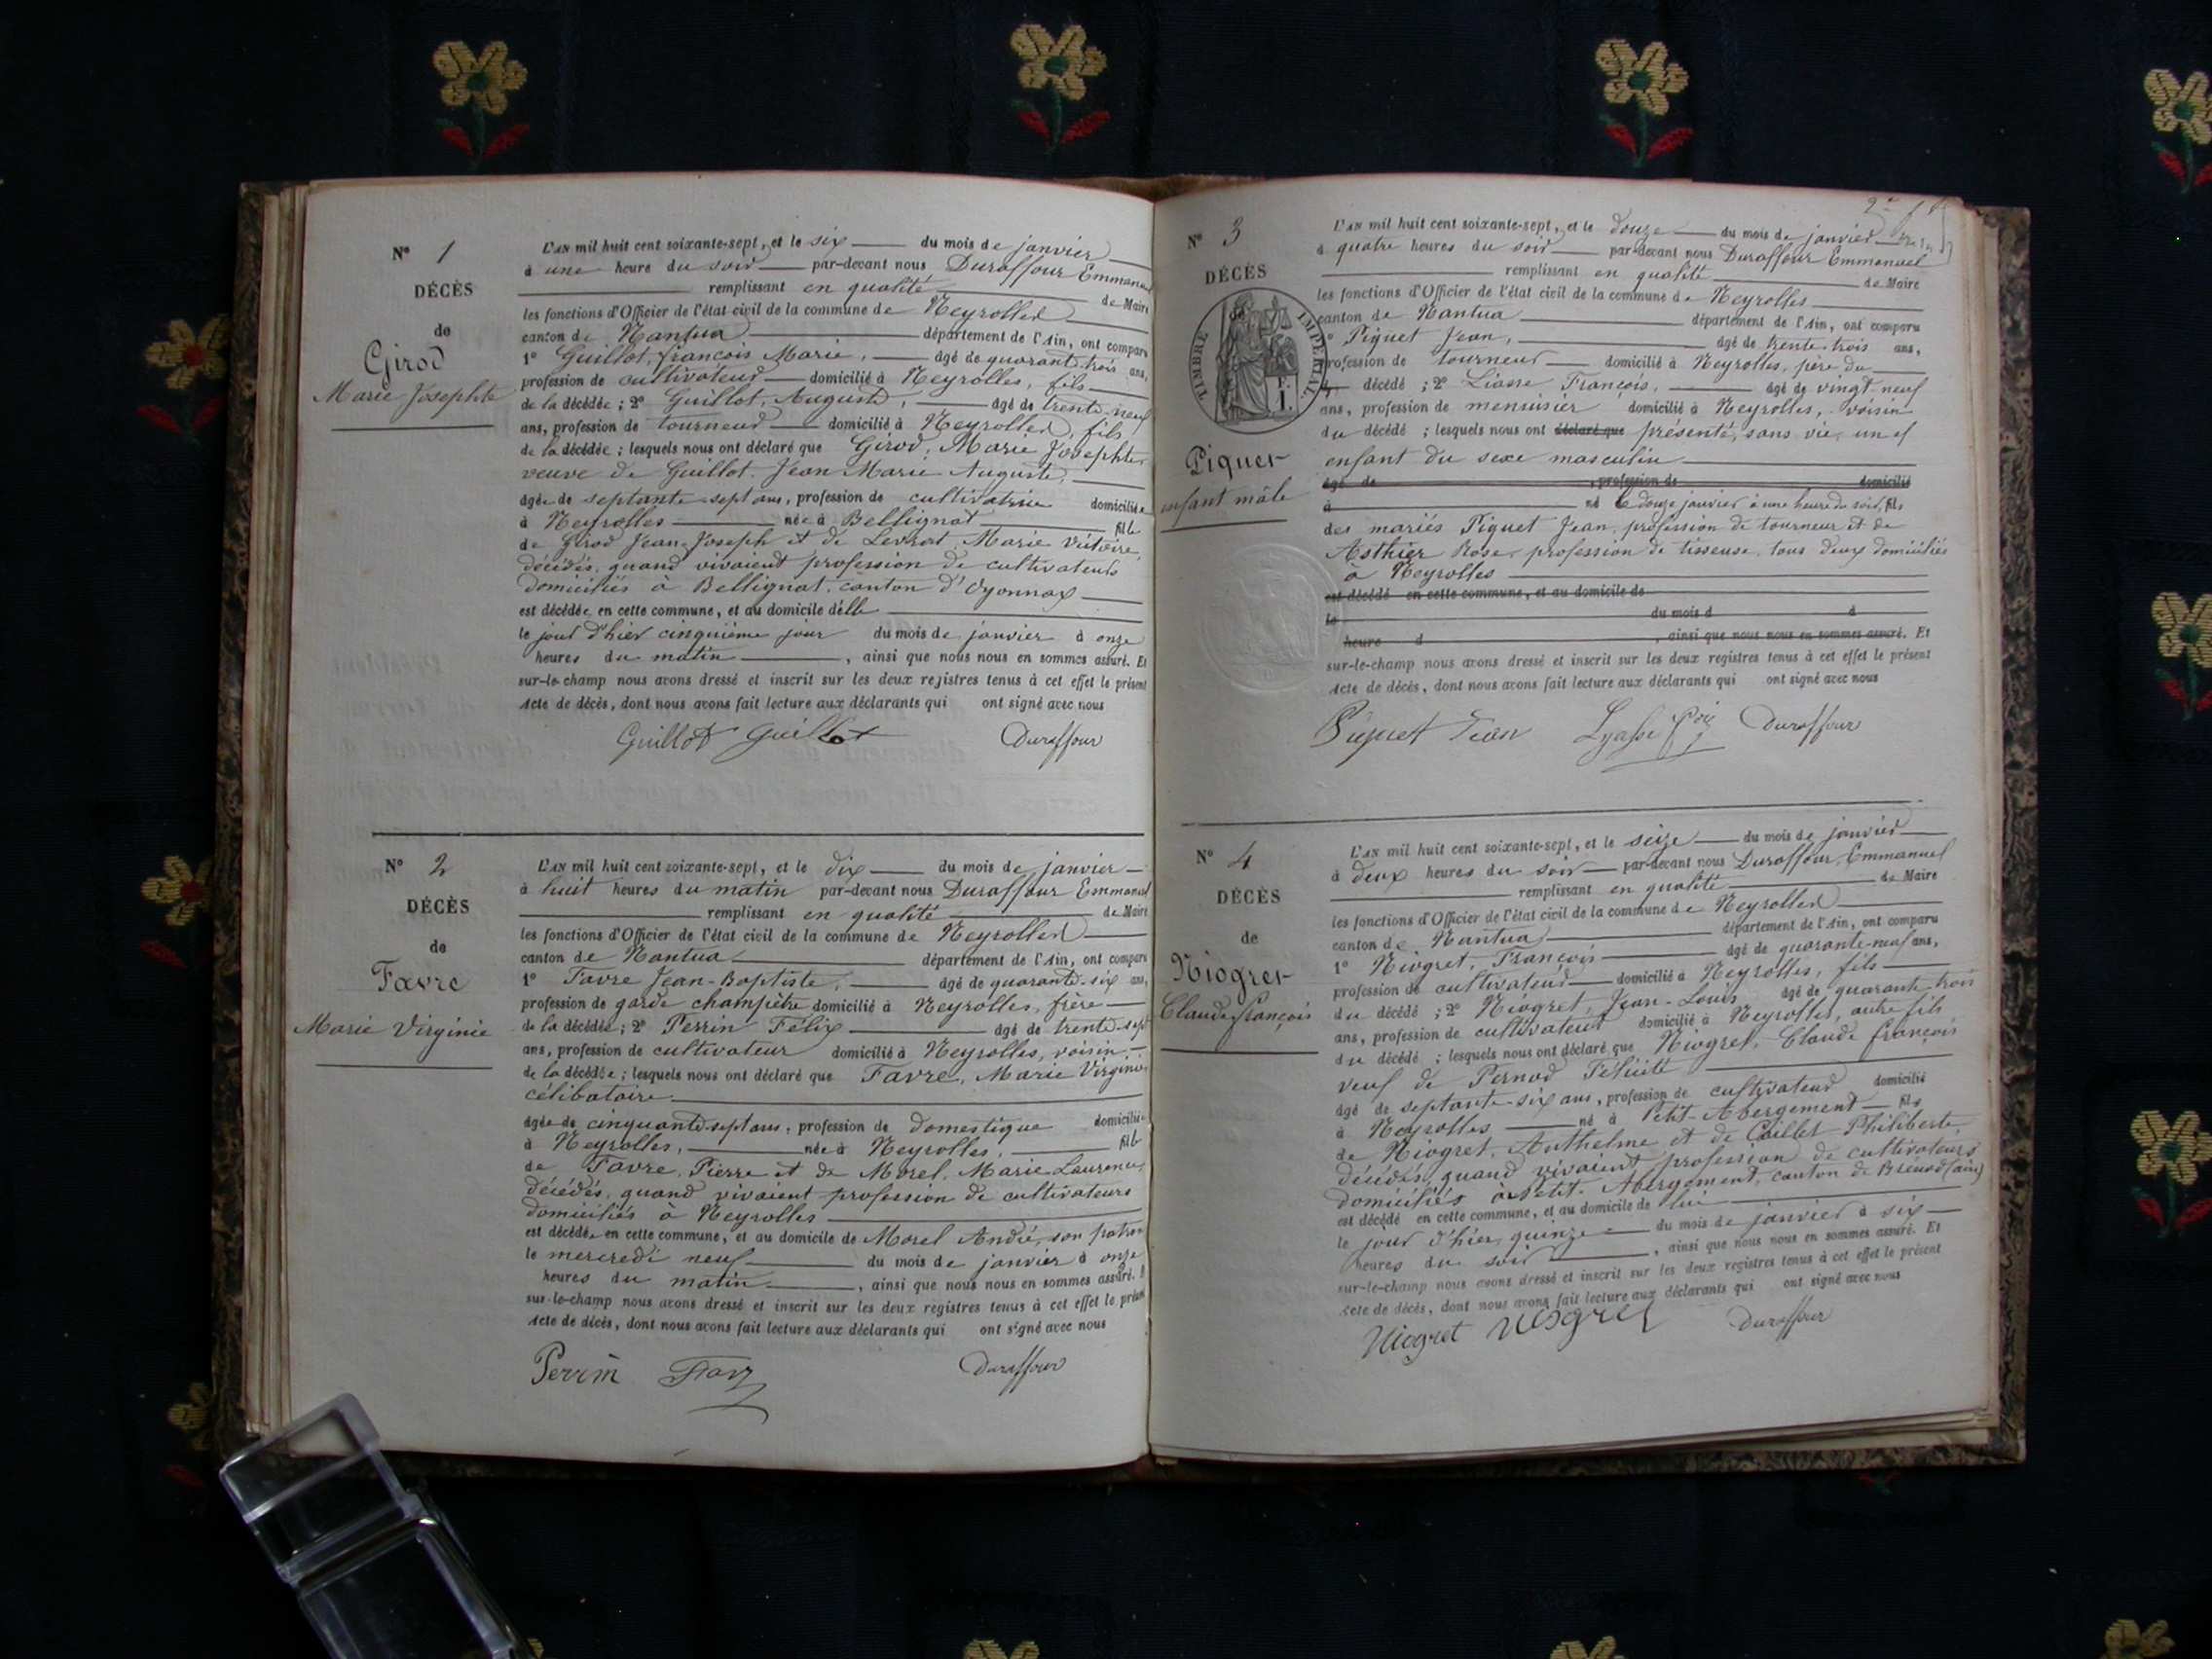 N° 1
DÉCÈS
de
Girod
Marie Josephte
L'AN mil huit cent soixante-sept, et le six du mois de janvier
à une heure du soir par-devant nous Duraffour Emmanuel
remplissant en qualité de Maire
les fonctions d'Officier de l'état civil de la commune de Neyrolles
canton de Nantua département de l'Ain, ont comparu
1° Guillot, françois Marie, âgé de quarante-trois ans,
profession de cultivateur domicilié à Neyrolles, fils
de la décédée ; 2° Guillot, Auguste, âgé de trente-neuf
ans, profession de tourneur domicilié à Neyrolles, fils
de la décédée ; lesquels nous ont déclaré que Girod, Marie Josephte
veuve de Guillot Jean Marie Auguste,
âgée de septante-sept ans, profession de cultivatrice domiciliée
à Neyrolles née à Bellignat fille
de Girod Jean-Joseph et de Levrat, Marie Victoire,
décédés, quand vivaient profession de cultivateurs
domiciliés à Bellignat, canton d'Oyonnax
est décédée en cette commune, et au domicile d'elle
le jour d'hier cinquième jour du mois de janvier à onze
heures du matin, ainsi que nous nous en sommes assuré. Et
sur-le-champ nous avons dressé et inscrit sur les deux registres tenus à cet effet le présent
Acte de décès, dont nous avons fait lecture aux déclarants qui ont signé avec nous
Guillot Guillot Duraffour
N° 2
DÉCÈS
de
Favre
Marie Virginie
L'AN mil huit cent soixante-sept, et le dix du mois de janvier
à huit heures du matin par-devant nous Duraffour Emmanuel
remplissant en qualité de Maire
les fonctions d'Officier de l'état civil de la commune de Neyrolles
canton de Nantua département de l'Ain, ont comparu
1° Favre Jean-Baptiste, âgé de quarante-six ans,
profession de garde champêtre domicilié à Neyrolles, frère
de la décédée ; 2° Perrin Félix âgé de trente-sept
ans, profession de cultivateur domicilié à Neyrolles, voisin
de la décédée ; lesquels nous ont déclaré que Favre, Marie Virginie
célibataire
âgée de cinquante-sept ans, profession de domestique domiciliée
à Neyrolles, née à Neyrolles, fille
de Favre, Pierre et de Morel, Marie Laurence,
décédés, quand vivaient profession de cultivateurs
domiciliés à Neyrolles
est décédée en cette commune, et au domicile de Morel André, son patron
le mercredi neuf du mois de janvier à onze
heures du matin, ainsi que nous nous en sommes assuré. Et
sur-le-champ nous avons dressé et inscrit sur les deux registres tenus à cet effet le présent
Acte de décès, dont nous avons fait lecture aux déclarants qui ont signé avec nous
Perrin Favre Duraffour
N° 3
DÉCÈS
de
TIMBRE IMPÉRIAL
Piquet
enfant mâle
L'AN mil huit cent soixante-sept, et le douze du mois de janvier
à quatre heures du soir par-devant nous Duraffour Emmanuel
remplissant en qualité de Maire
les fonctions d'Officier de l'état civil de la commune de Neyrolles
canton de Nantua département de l'Ain, ont comparu
1° Piquet Jean, âgé de trente-trois ans,
profession de tourneur domicilié à Neyrolles, père du
décédé ; 2° Liasse François, âgé de vingt-neuf
ans, profession de menuisier domicilié à Neyrolles, voisin
du décédé ; lesquels nous ont déclaré que présenté, sans vie, un
enfant du sexe masculin
âgé de , profession de domicilié
à né le douze janvier à une heure du soir, fils
des mariés Piquet Jean, profession de tourneur et de
Asthier Rose, profession de tisseuse, tous deux domiciliés
à Neyrolles
est décédé en cette commune, et au domicile de
le du mois d à
heure d , ainsi que nous nous en sommes assuré. Et
sur-le-champ nous avons dressé et inscrit sur les deux registres tenus à cet effet le présent
Acte de décès, dont nous avons fait lecture aux déclarants qui ont signé avec nous
Piquet Jean Lyasse Duraffour
N° 4
DÉCÈS
de
Niogret
Claude françois
L'AN mil huit cent soixante-sept, et le seize du mois de janvier
à deux heures du soir par-devant nous Duraffour, Emmanuel
remplissant en qualité de Maire
les fonctions d'Officier de l'état civil de la commune de Neyrolles
canton de Nantua département de l'Ain, ont comparu
1° Niogret, François âgé de quarante-neuf ans,
profession de cultivateur domicilié à Neyrolles, fils
du décédé ; 2° Niogret, Jean-Louis âgé de quarante-trois
ans, profession de cultivateur domicilié à Neyrolles, autre fils
du décédé ; lesquels nous ont déclaré que Niogret, Claude françois
veuf de Pernod Félicité
âgé de septante-six ans, profession de cultivateur domicilié
à Neyrolles né à Petit-Abergement fils
de Niogret, Anthelme et de Caillet Philiberte,
décédés, quand vivaient profession de cultivateurs
domiciliés à Petit-Abergement, canton de Brénod (ain)
est décédé en cette commune, et au domicile de lui
le jour d'hier, quinze du mois de janvier à six
heures du soir, ainsi que nous nous en sommes assuré. Et
sur-le-champ nous avons dressé et inscrit sur les deux registres tenus à cet effet le présent
Acte de décès, dont nous avons fait lecture aux déclarants qui ont signé avec nous
Niogret Niogret Duraffour